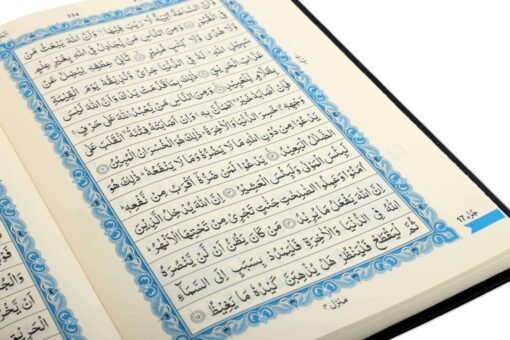 اَنَّ السَّاعَةَ اٰتِيَةٌ لَّا رَيْبَ فِيْهَا ۙ وَاَنَّ اللّٰهَ يَبْعَثُ مَنْ
فِى الْقُبُوْرِ ۝٧ وَمِنَ النَّاسِ مَنْ يُّجَادِلُ فِى اللّٰهِ بِغَيْرِ عِلْمٍ
وَّلَا هُدًى وَّلَا كِتٰبٍ مُّنِيْرٍ ۝٨ ثَانِىَ عِطْفِهٖ لِيُضِلَّ عَنْ
سَبِيْلِ اللّٰهِ ؕ لَهٗ فِى الدُّنْيَا خِزْىٌ وَّنُذِيْقُهٗ يَوْمَ الْقِيٰمَةِ
عَذَابَ الْحَرِيْقِ ۝٩ ذٰلِكَ بِمَا قَدَّمَتْ يَدٰكَ وَاَنَّ اللّٰهَ لَيْسَ
بِظَلَّامٍ لِّلْعَبِيْدِ ۝١٠ وَمِنَ النَّاسِ مَنْ يَّعْبُدُ اللّٰهَ عَلٰى حَرْفٍ ۚ
فَاِنْ اَصَابَهٗ خَيْرُ ۨاطْمَاَنَّ بِهٖ ۚ وَاِنْ اَصَابَتْهُ فِتْنَةُ ۨانْقَلَبَ عَلٰى
وَجْهِهٖ ۚ خَسِرَ الدُّنْيَا وَالْاٰخِرَةَ ؕ ذٰلِكَ هُوَ الْخُسْرَانُ الْمُبِيْنُ ۝١١
يَدْعُوْا مِنْ دُوْنِ اللّٰهِ مَا لَا يَضُرُّهٗ وَمَا لَا يَنْفَعُهٗ ؕ ذٰلِكَ هُوَ
الضَّلٰلُ الْبَعِيْدُ ۝١٢ يَدْعُوْا لَمَنْ ضَرُّهٗۤ اَقْرَبُ مِنْ نَّفْعِهٖ ؕ
لَبِئْسَ الْمَوْلٰى وَلَبِئْسَ الْعَشِيْرُ ۝١٣ اِنَّ اللّٰهَ يُدْخِلُ الَّذِيْنَ
اٰمَنُوْا وَعَمِلُوا الصّٰلِحٰتِ جَنّٰتٍ تَجْرِىْ مِنْ تَحْتِهَا الْاَنْهٰرُ ؕ
اِنَّ اللّٰهَ يَفْعَلُ مَا يُرِيْدُ ۝١٤ مَنْ كَانَ يَظُنُّ اَنْ لَّنْ يَّنْصُرَهُ
اللّٰهُ فِى الدُّنْيَا وَالْاٰخِرَةِ فَلْيَمْدُدْ بِسَبَبٍ اِلَى السَّمَآءِ
ثُمَّ لْيَقْطَعْ فَلْيَنْظُرْ هَلْ يُذْهِبَنَّ كَيْدُهٗ مَا يَغِيْظُ ۝١٥
جُزْء ١٧
منزل ۴